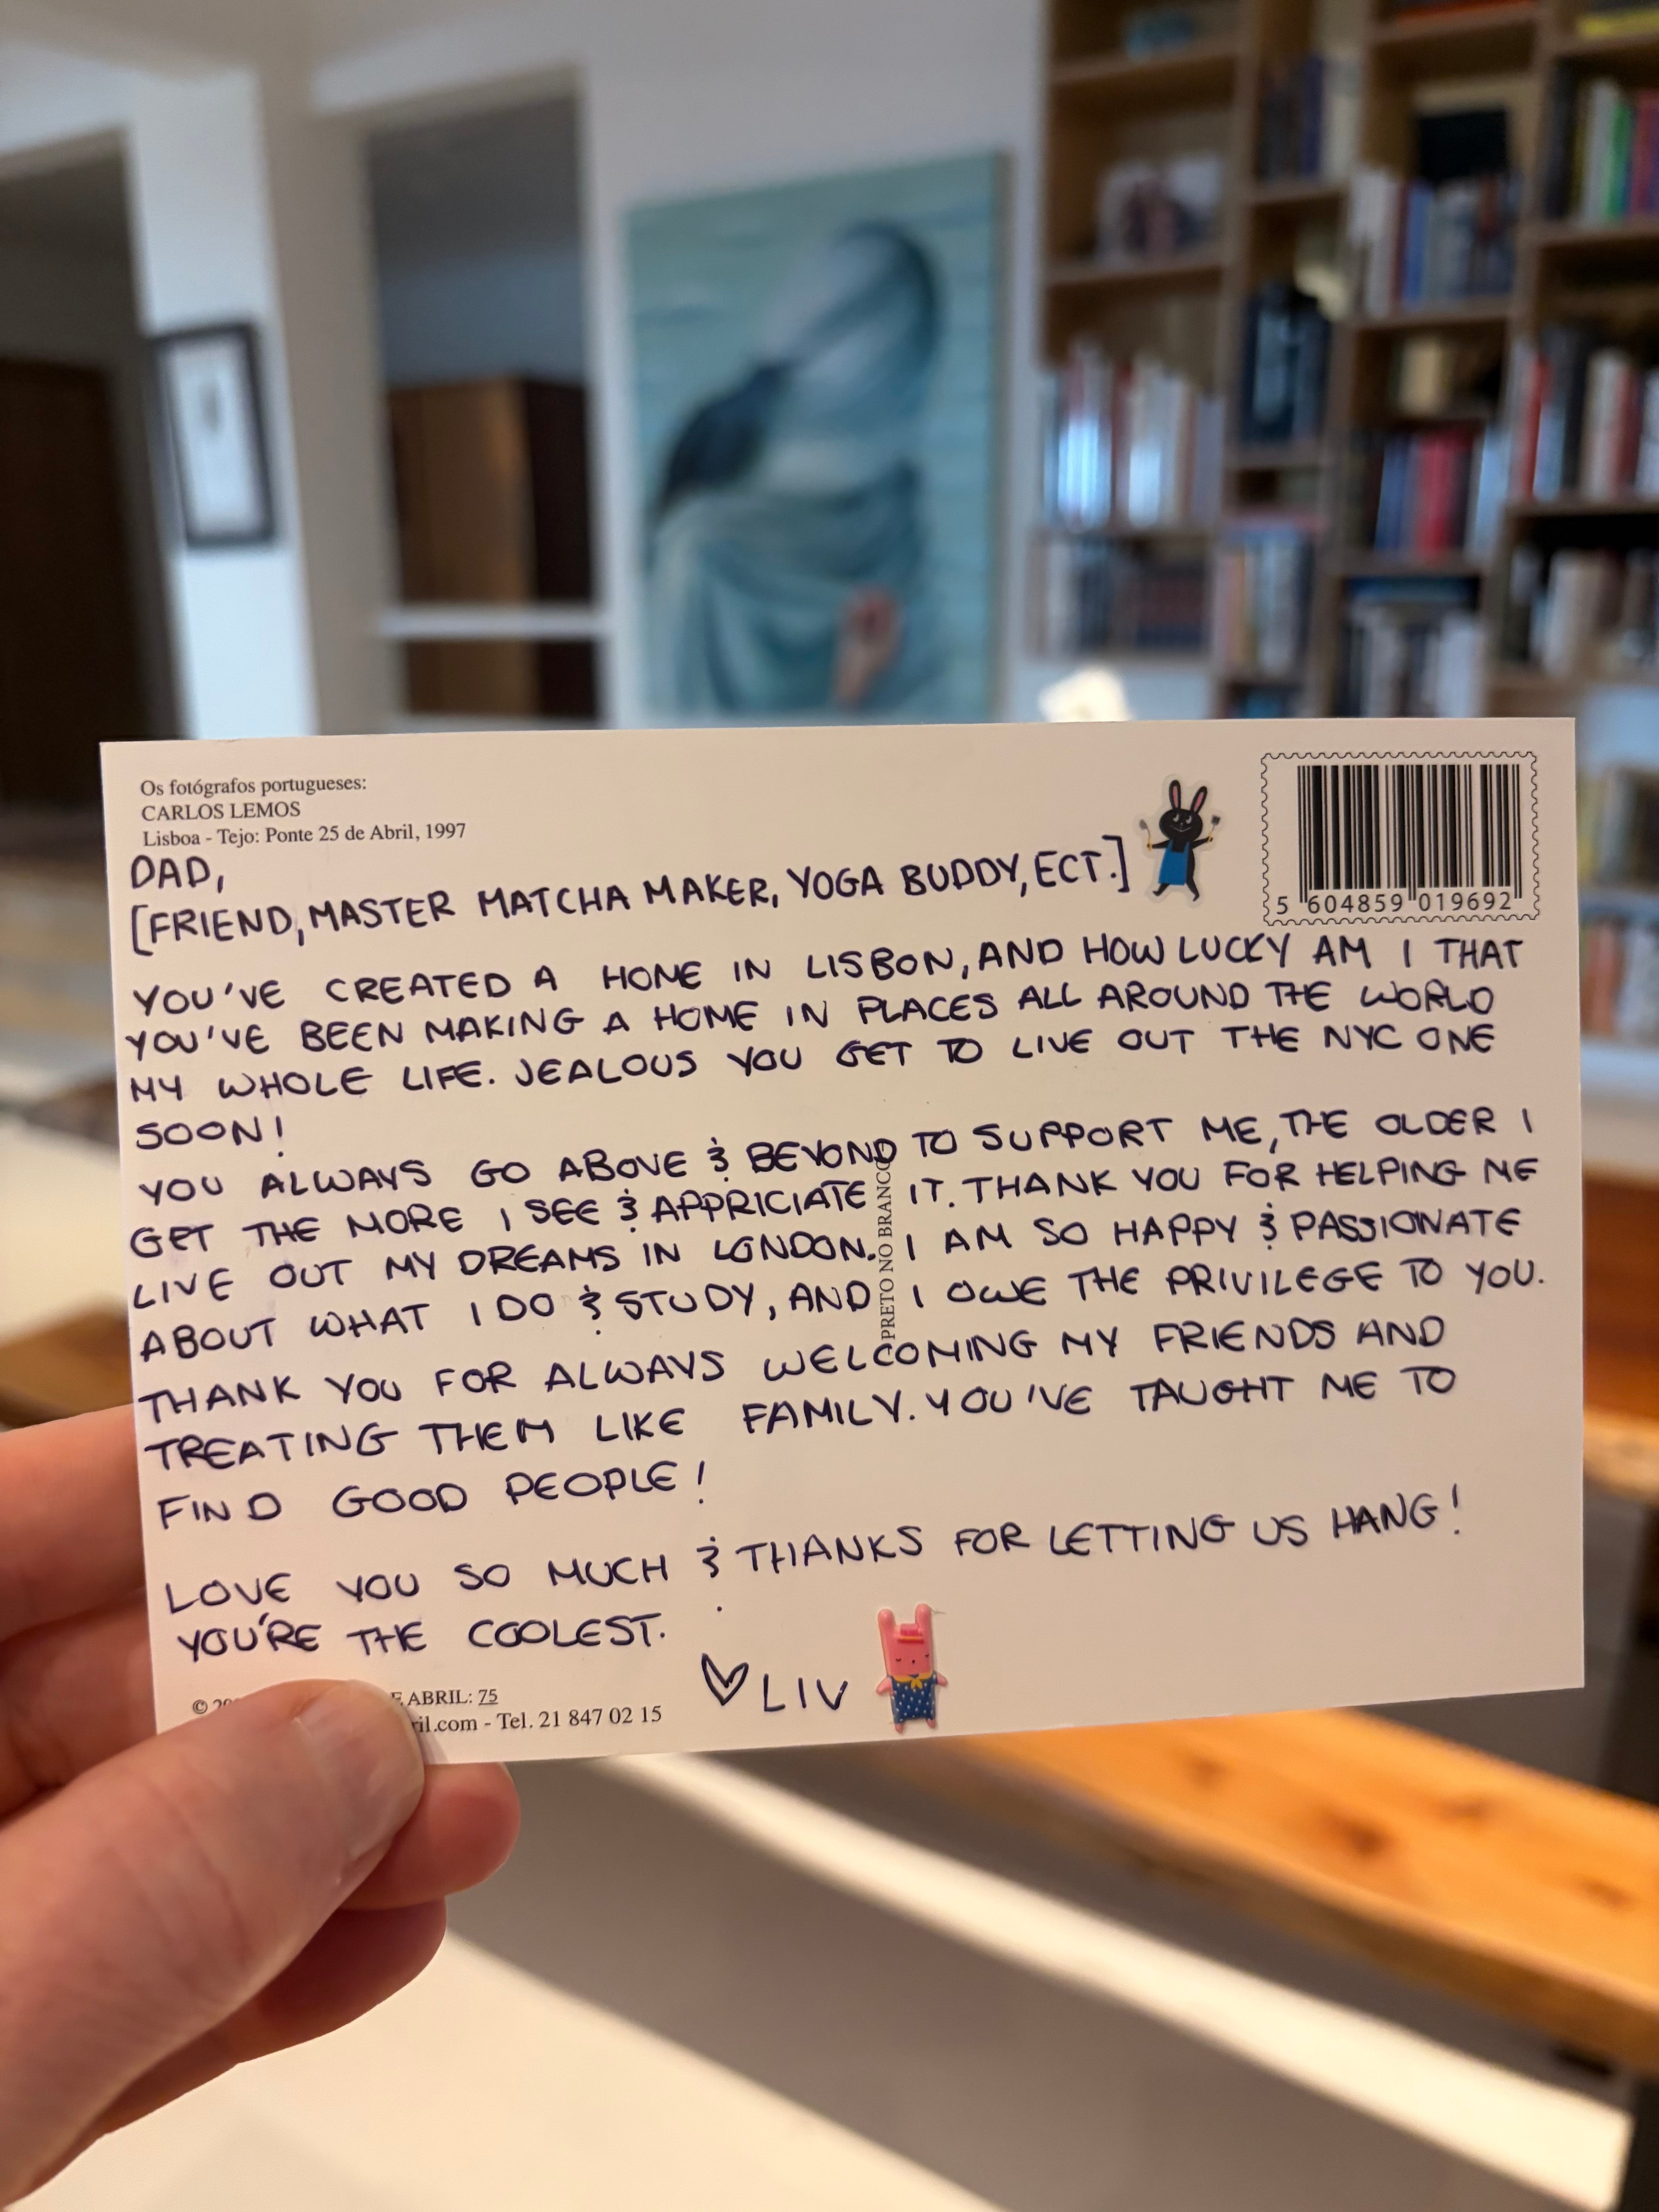 Os fotógrafos portugueses:
CARLOS LEMOS
Lisboa - Tejo: Ponte 25 de Abril, 1997
5 604859 019692
DAD,
[FRIEND, MASTER MATCHA MAKER, YOGA BUDDY, ECT.]
YOU'VE CREATED A HOME IN LISBON, AND HOW LUCKY AM I THAT
YOU'VE BEEN MAKING A HOME IN PLACES ALL AROUND THE WORLD
MY WHOLE LIFE. JEALOUS YOU GET TO LIVE OUT THE NYC ONE
SOON!
YOU ALWAYS GO ABOVE & BEYOND TO SUPPORT ME, THE OLDER I
GET THE MORE I SEE & APPRICIATE IT. THANK YOU FOR HELPING ME
LIVE OUT MY DREAMS IN LONDON. I AM SO HAPPY & PASSIONATE
ABOUT WHAT I DO & STUDY, AND I OWE THE PRIVILEGE TO YOU.
THANK YOU FOR ALWAYS WELCOMING MY FRIENDS AND
TREATING THEM LIKE FAMILY. YOU'VE TAUGHT ME TO
FIND GOOD PEOPLE!
LOVE YOU SO MUCH & THANKS FOR LETTING US HANG!
YOU'RE THE COOLEST.
♡ LIV
PRETO NO BRANCO
© ABRIL: 75
ril.com - Tel. 21 847 02 15